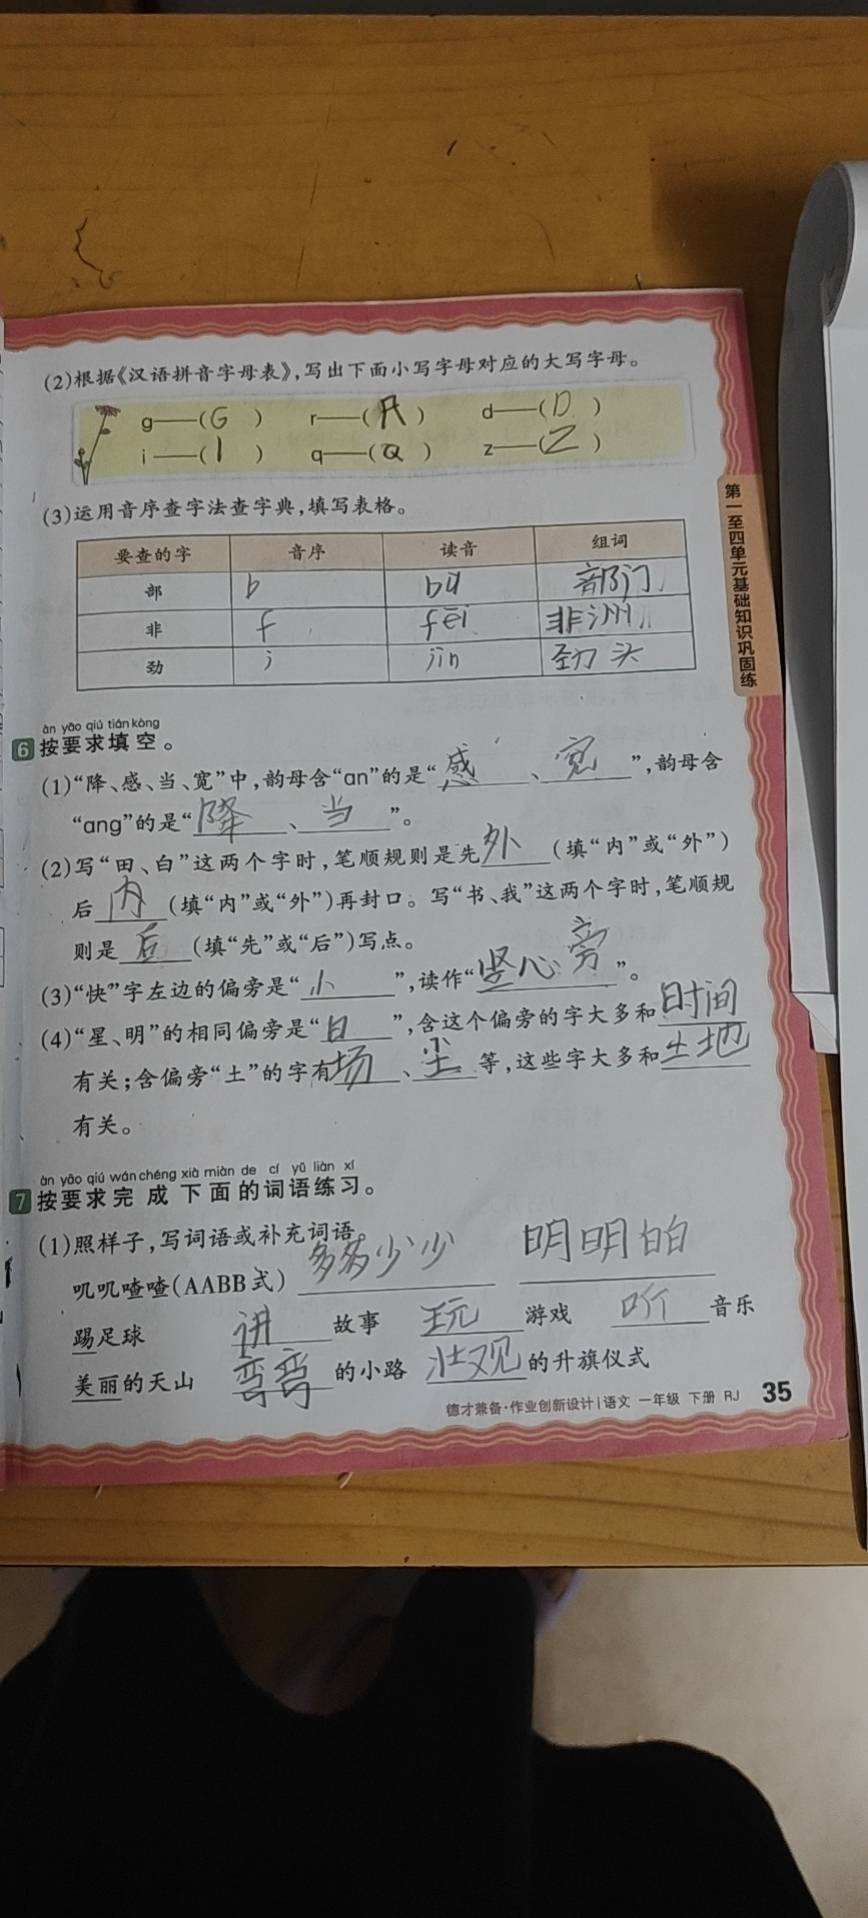 (2)根据《汉语拼音字母表》,写出下面小写字母对应的大写字母。
g——(G) r——(R) d——(D)
i——(I) q——(Q) z——(Z)
(3)运用音序查字法查字典,填写表格。
要查的字 音序 读音 组词
部 b bù 部门
非 f fēi 非洲
劲 j jìn 劲头
第一至四单元基础知识巩固练
àn yāo qiú tián kòng
6 按要求填空。
(1)“降、感、当、宽”中,韵母含“an”的是“感、宽”,韵母含
“ang”的是“降、当”。
(2)写“田、白”这两个字时,笔顺规则是先外(填“内”或“外”)
后内(填“内”或“外”)再封口。写“书、我”这两个字时,笔顺规
则是后(填“先”或“后”)写点。
(3)“快”字左边的偏旁是“忄”,读作“竖心旁”。
(4)“星、明”的相同偏旁是“日”,含这个偏旁的字大多和时间
有关;含偏旁“土”的字有场、尘等,这些字大多和土地
有关。
àn yāo qiú wán chéng xià miàn de cí yǔ liàn xí
7 按要求完成下面的词语练习。
(1)照样子,写词语或补充词语。
叽叽喳喳(AABB式) 多多少少 明明白白
踢足球 讲故事 玩游戏 听音乐
美丽的天山 弯弯的小路 壮观的升旗仪式
德才兼备·作业创新设计|语文 一年级 下册 RJ 35